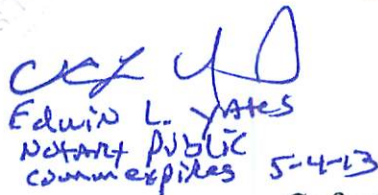 Edwin L. Yates
Notary Public
comm expires 5-4-13